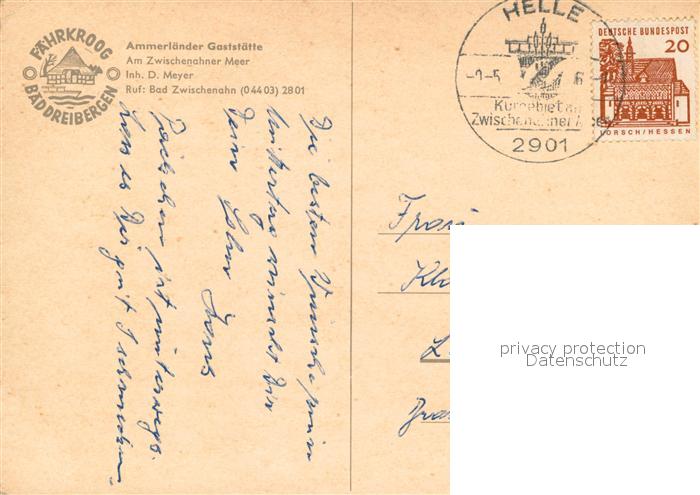 FÄHRKROOG
BAD DREIBERGEN
Ammerländer Gaststätte
Am Zwischenahner Meer
Inh. D. Meyer
Ruf: Bad Zwischenahn (0 44 03) 2801
HELLE
Kurgebiet am
Zwischenahner Meer
2901
DEUTSCHE BUNDESPOST
20
LORSCH/HESSEN
Die besten Wünsche zum
Muttertag wünscht Dir
Dein Sohn
Päckchen ist unterwegs.
Lass es Dir gut schmecken
Frau
privacy protection
Datenschutz